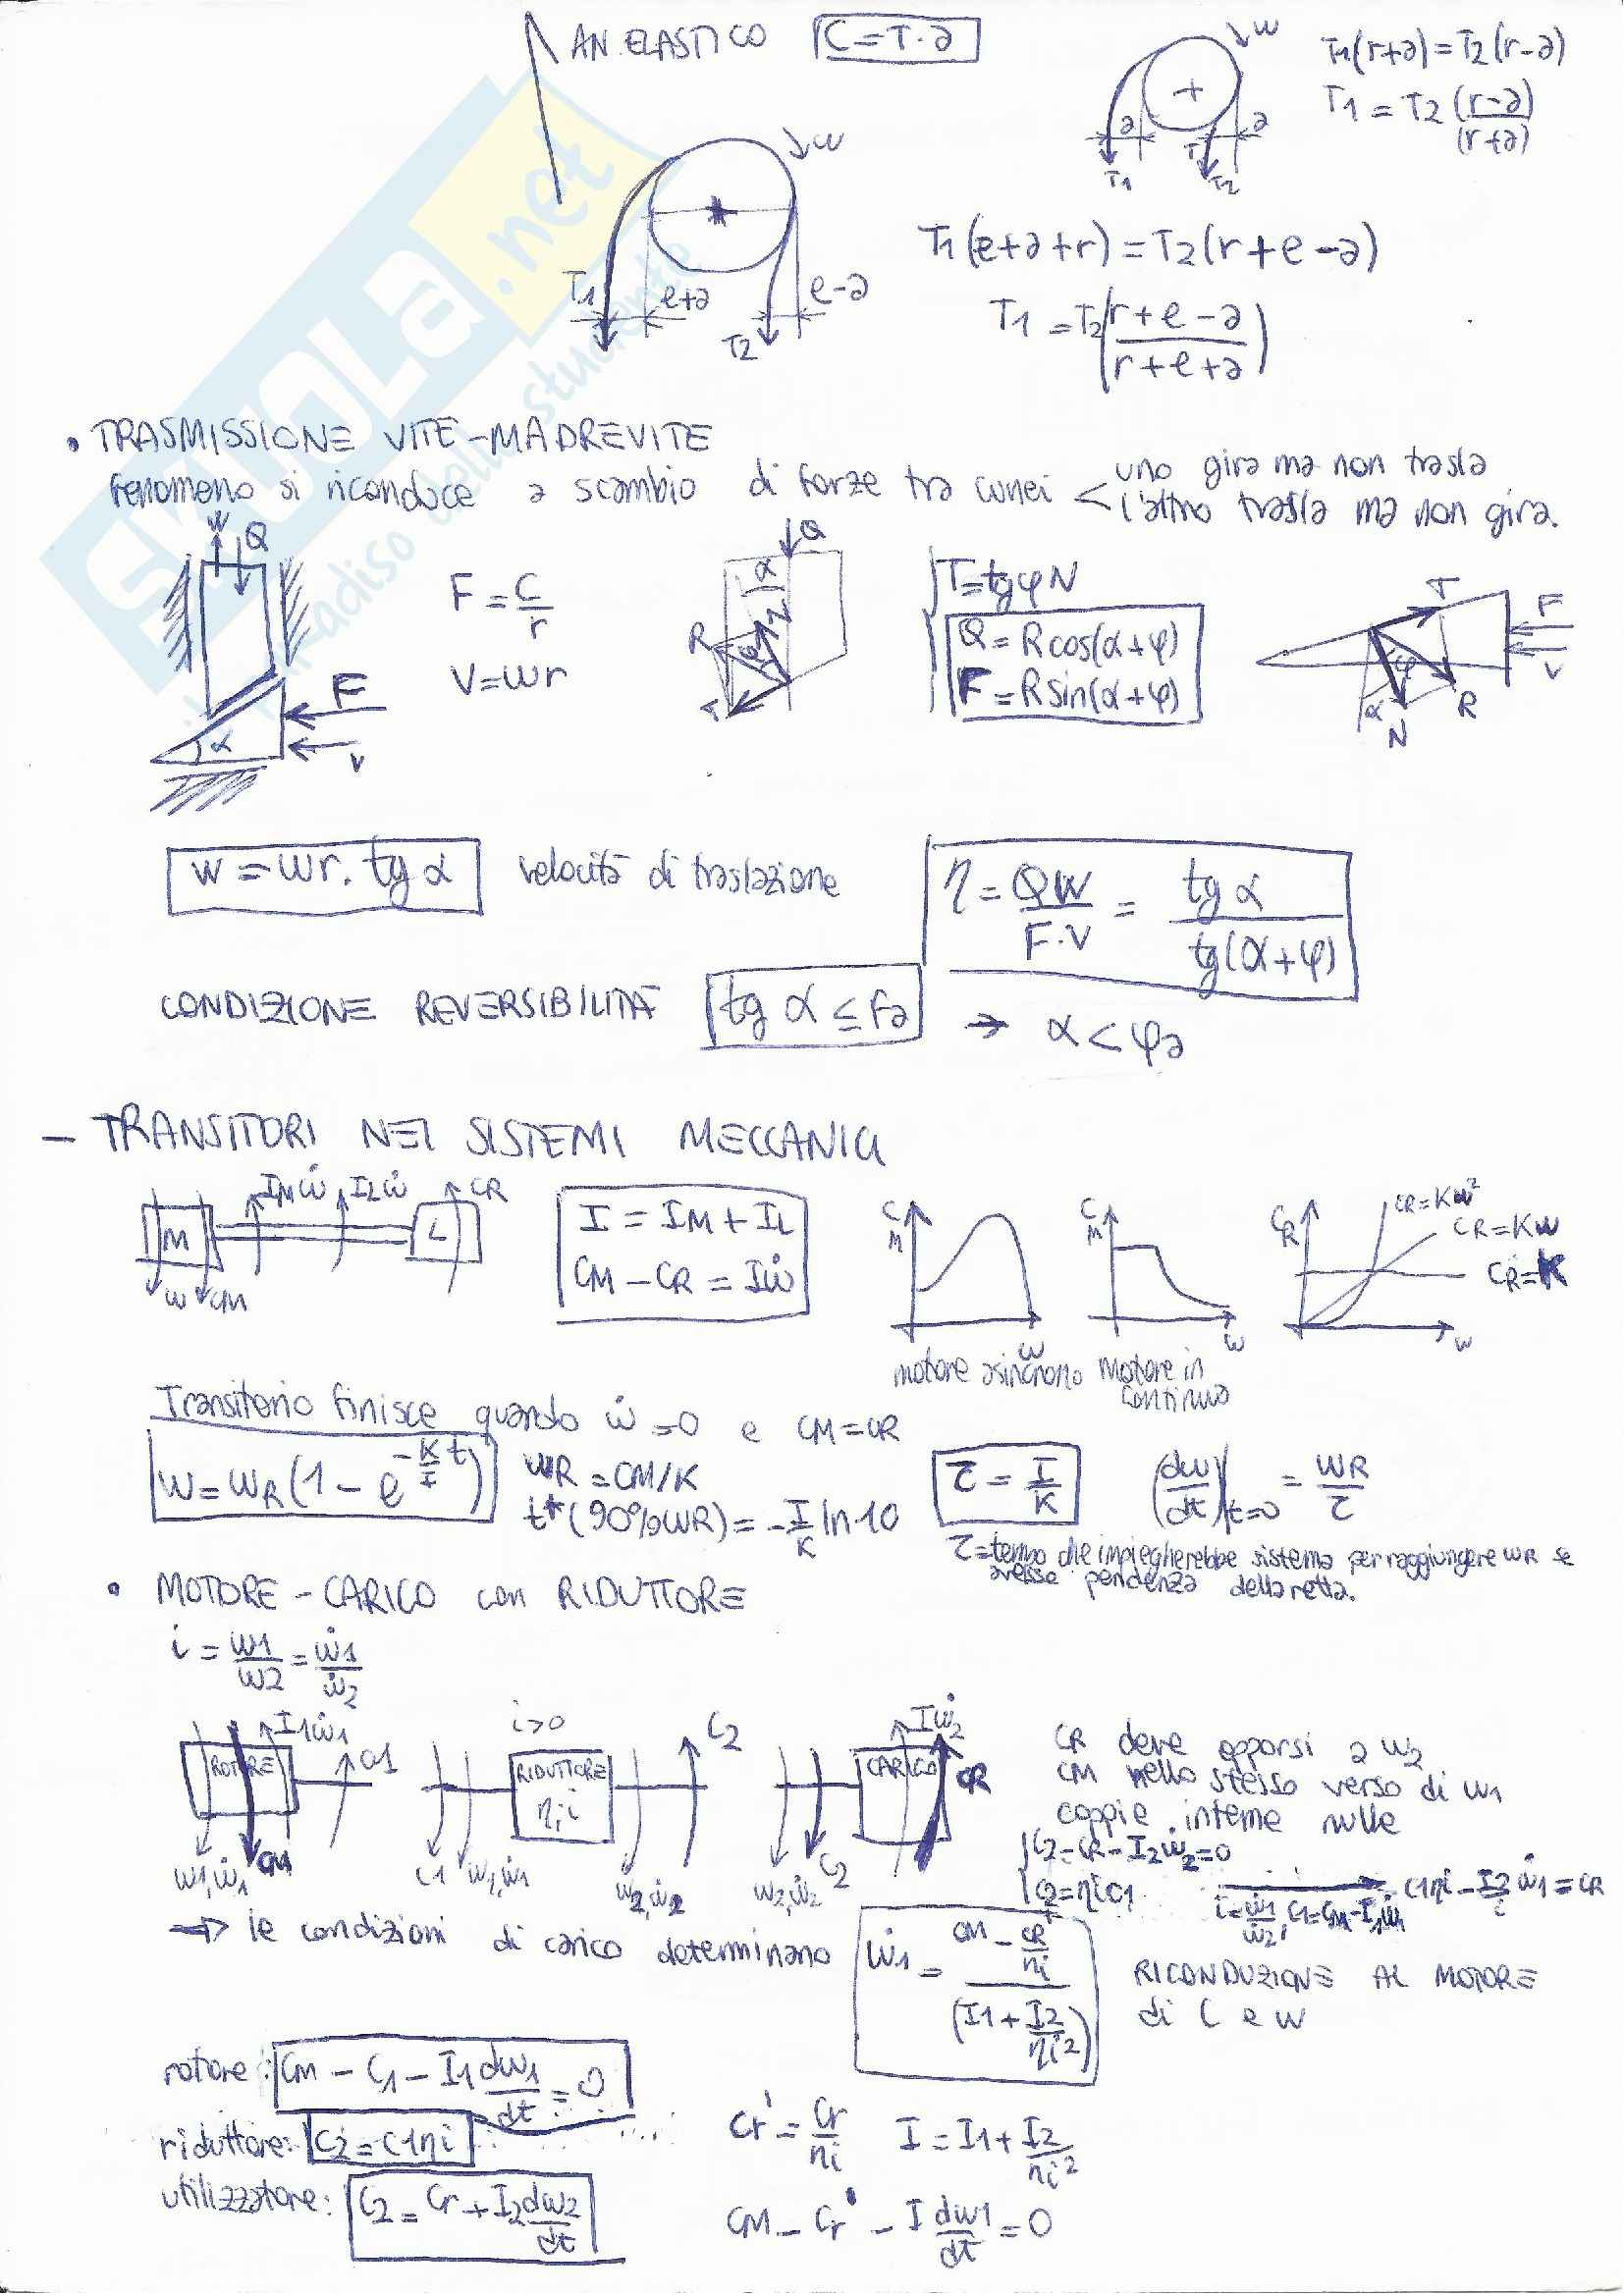 AN.ELASTICO C=T·a
ω
T1(r+a)=T2(r-a)
T1=T2 (r-a)/(r+a)
a a
T1 T2
ω
T1 e+a e-a T2
T1(e+a+r)=T2(r+e-a)
T1=T2((r+e-a)/(r+e+a))
SKUOLA.net
il paradiso dello studente
• TRASMISSIONE VITE-MADREVITE
fenomeno si riconduce a scambio di forze tra cunei < uno gira ma non trasla
l'altro trasla ma non gira.
W Q
F=C/r
V=ωr
F α V
Q α N φ R T
T=tgφN
Q=Rcos(α+φ)
F=Rsin(α+φ)
T F V φ α N R
W=ωr.tgα velocità di traslazione
η=QW/F·V = tgα/tg(α+φ)
CONDIZIONE REVERSIBILITÀ tgα≤fa → α<φa
- TRANSITORI NEI SISTEMI MECCANICI
M IMω̇ ILω̇ CR L
ω CM
I=IM+IL
CM-CR=Iω̇
CM ω
motore asincrono
CM ω
Motore in continuo
CR CR=Kω² CR=Kω CR=K ω
Transitorio finisce quando ω̇=0 e CM=CR
ω=ωR(1-e^(-K/I t))
ωR=CM/K
t*(90%ωR)=-I/K ln·10
τ=I/K
(dω/dt)|t=0=ωR/τ
τ=tempo che impiegherebbe sistema per raggiungere ωR se
avesse pendenza della retta.
• MOTORE-CARICO con RIDUTTORE
i=ω1/ω2=ω̇1/ω̇2
ROTORE I1ω̇1 C1 ω1,ω̇1 CM
i>0
RIDUTTORE η,i
C1 ω1,ω̇1 C2 ω2,ω̇2
CARICO Iω̇2 CR ω2,ω̇2 C2
CR deve opporsi a ω2
CM nello stesso verso di ω1
coppie interne nulle
C2-CR-I2ω̇2=0
C2=ηiC1
i=ω̇1/ω̇2, C1=CM-I1ω̇1
C1ηi-I2/i ω̇1=CR
⇒ le condizioni di carico determinano
ω̇1=(CM-CR/ηi)/(I1+I2/ηi²)
RICONDUZIONE AL MOTORE
di C e ω
rotore: CM-C1-I1dω1/dt=0
riduttore: C2=C1ηi
utilizzatore: C2=Cr+I2dω2/dt
Cr'=Cr/ηi I=I1+I2/ηi²
CM-Cr'-I dω1/dt=0